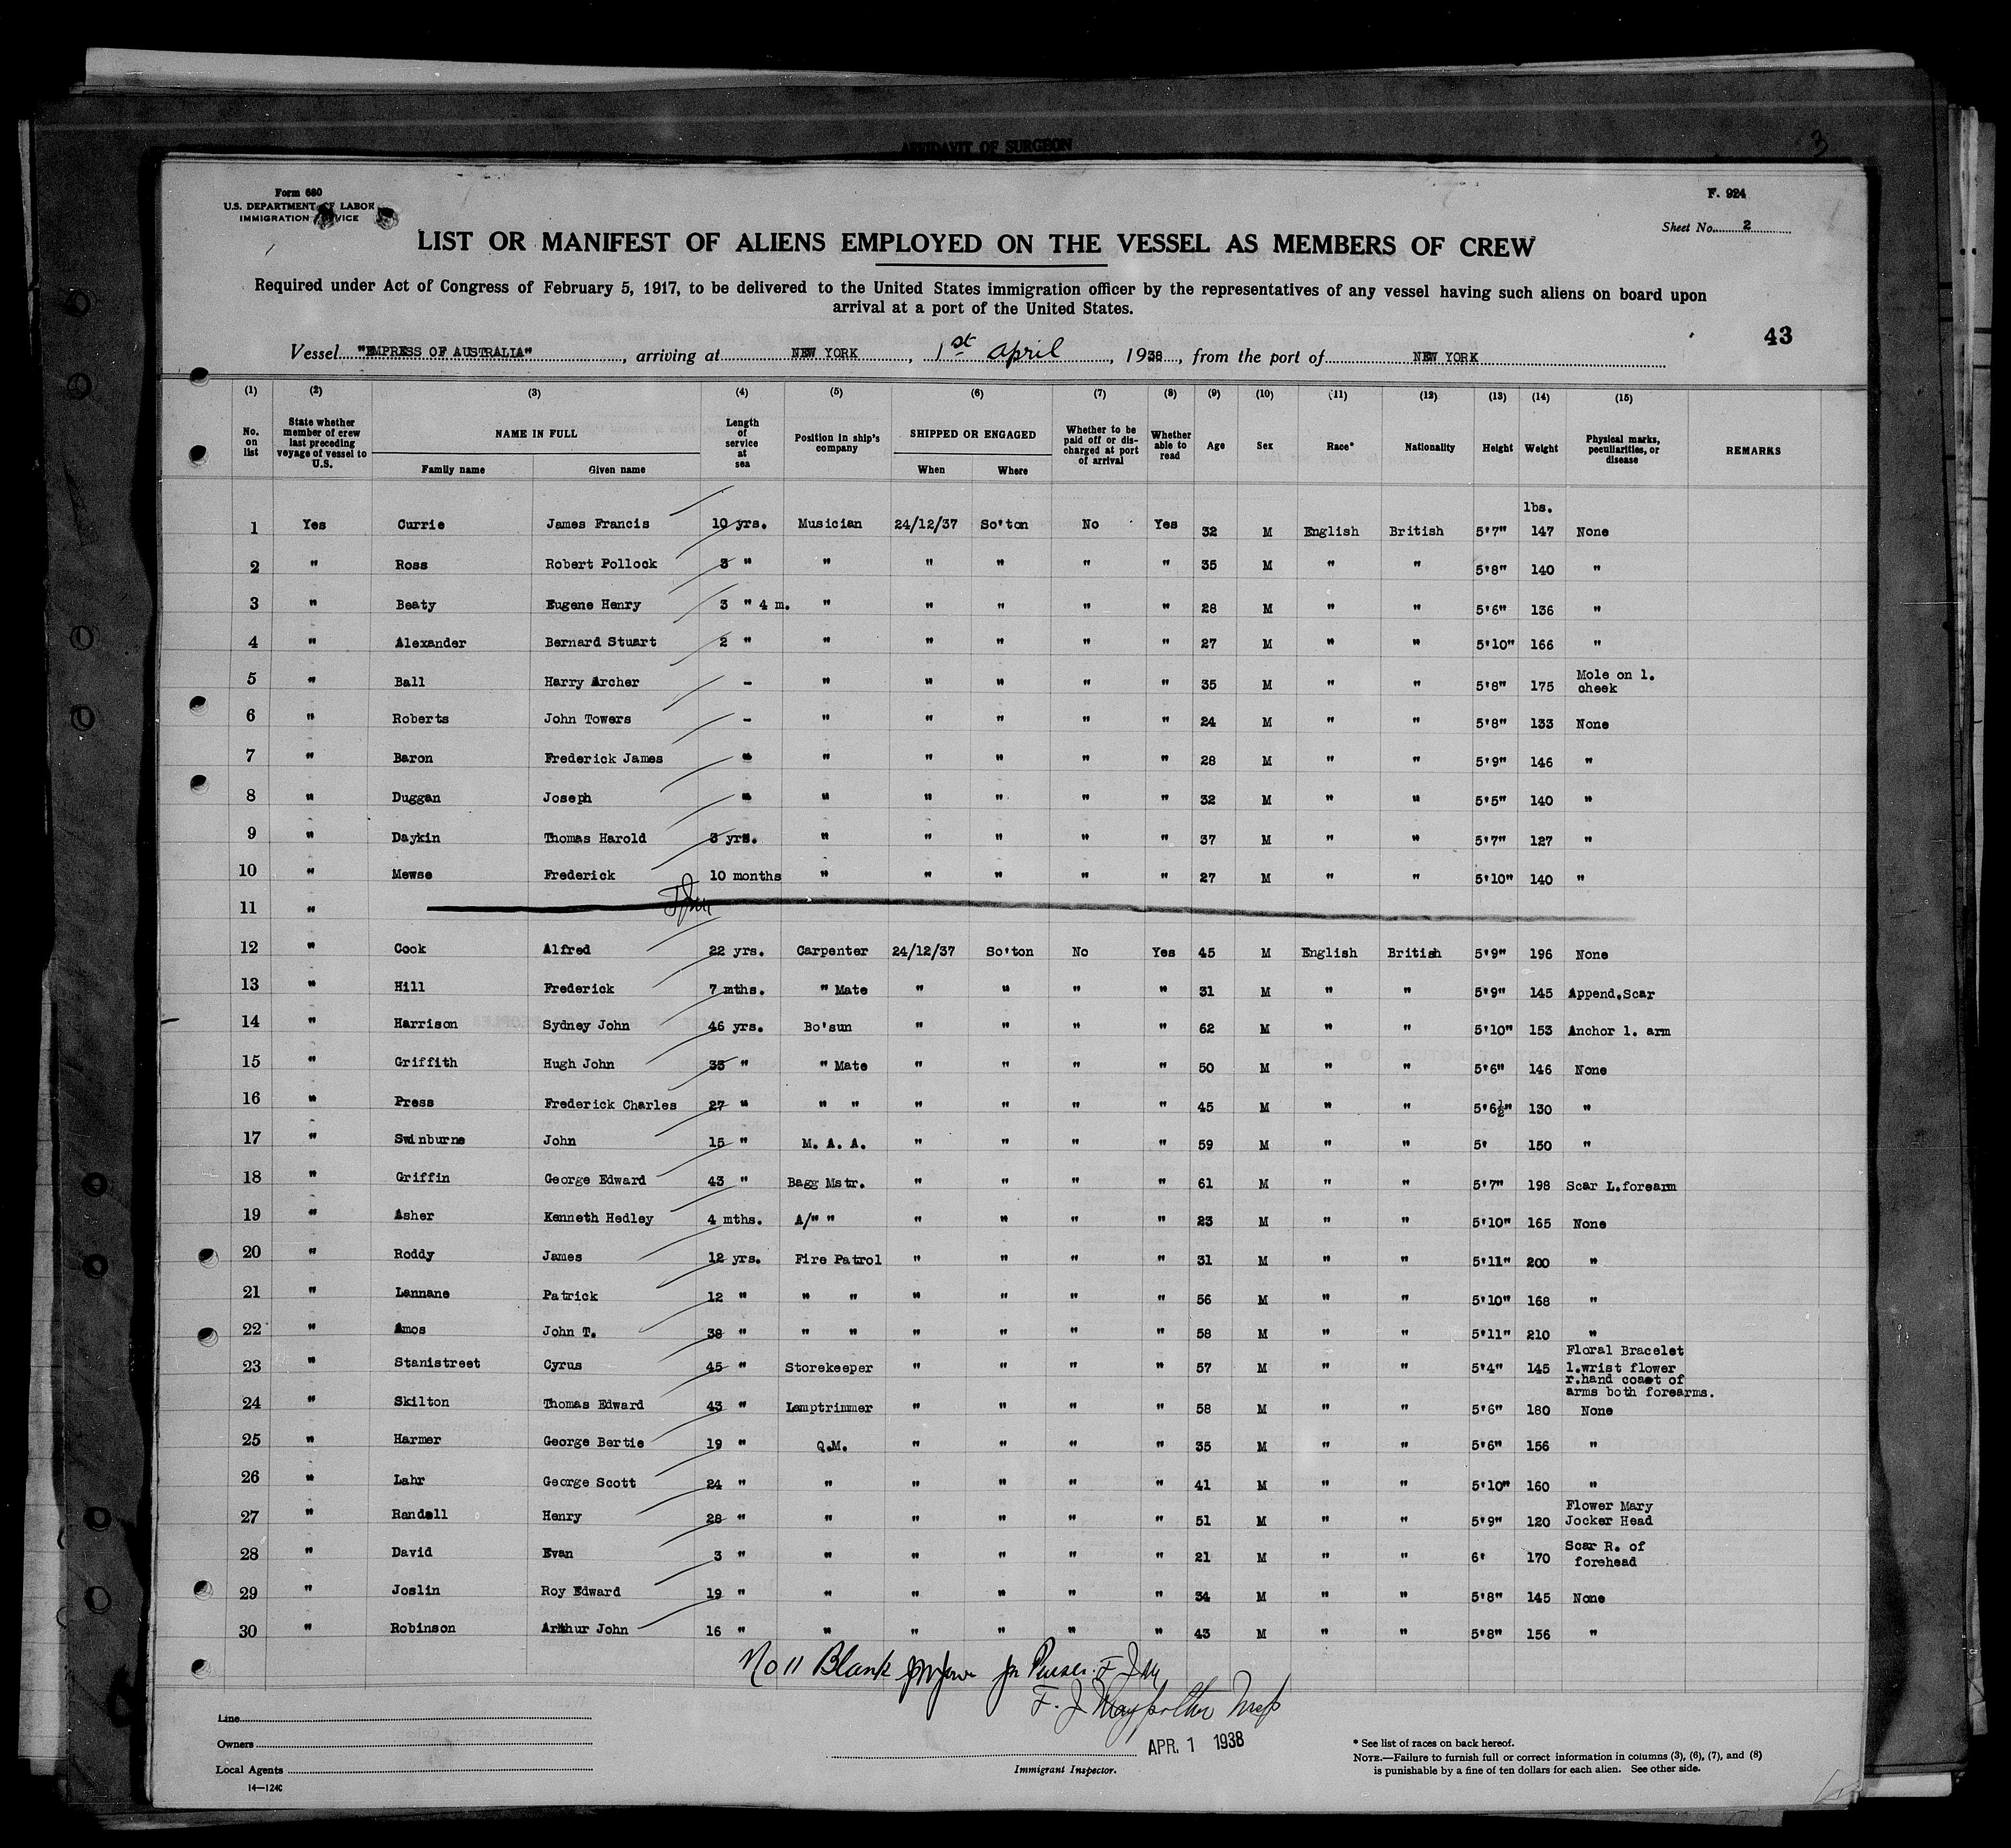 AFFIDAVIT OF SURGEON
3
Form 680
U.S. DEPARTMENT OF LABOR
IMMIGRATION SERVICE
F. 924
Sheet No. 2
LIST OR MANIFEST OF ALIENS EMPLOYED ON THE VESSEL AS MEMBERS OF CREW
Required under Act of Congress of February 5, 1917, to be delivered to the United States immigration officer by the representatives of any vessel having such aliens on board upon
arrival at a port of the United States.
43
Vessel "EMPRESS OF AUSTRALIA", arriving at NEW YORK, 1st April, 1938, from the port of NEW YORK
(1) (2) (3) (4) (5) (6) (7) (8) (9) (10) (11) (12) (13) (14) (15)
No. on list | State whether member of crew last preceding voyage of vessel to U.S. | NAME IN FULL Family name Given name | Length of service at sea | Position in ship's company | SHIPPED OR ENGAGED When Where | Whether to be paid off or discharged at port of arrival | Whether able to read | Age | Sex | Race* | Nationality | Height | Weight | Physical marks, peculiarities, or disease | REMARKS
lbs.
1 Yes Currie James Francis 10 yrs. Musician 24/12/37 So'ton No Yes 32 M English British 5'7" 147 None
2 " Ross Robert Pollock 3 " " " " " " 35 M " " 5'8" 140 "
3 " Beaty Eugene Henry 3 " 4 m. " " " " " 28 M " " 5'6" 136 "
4 " Alexander Bernard Stuart 2 " " " " " " 27 M " " 5'10" 166 "
5 " Ball Harry Archer - " " " " " 35 M " " 5'8" 175 Mole on l. cheek
6 " Roberts John Towers - " " " " " 24 M " " 5'8" 133 None
7 " Baron Frederick James " " " " " " 28 M " " 5'9" 146 "
8 " Duggan Joseph " " " " " " 32 M " " 5'5" 140 "
9 " Daykin Thomas Harold 3 yrs. " " " " " 37 M " " 5'7" 127 "
10 " Mewse Frederick 10 months " " " " " 27 M " " 5'10" 140 "
11 "
12 " Cook Alfred 22 yrs. Carpenter 24/12/37 So'ton No Yes 45 M English British 5'9" 196 None
13 " Hill Frederick 7 mths. " Mate " " " " 31 M " " 5'9" 145 Append.Scar
14 " Harrison Sydney John 46 yrs. Bo'sun " " " " 62 M " " 5'10" 153 Anchor l. arm
15 " Griffith Hugh John 33 " " Mate " " " " 50 M " " 5'6" 146 None
16 " Press Frederick Charles 27 " " " " " " " 45 M " " 5'6½" 130 "
17 " Swinburne John 15 " M. A. A. " " " " 59 M " " 5' 150 "
18 " Griffin George Edward 43 " Bagg Mstr. " " " " 61 M " " 5'7" 198 Scar L.forearm
19 " Asher Kenneth Hedley 4 mths. A/" " " " " " 23 M " " 5'10" 165 None
20 " Roddy James 12 yrs. Fire Patrol " " " " 31 M " " 5'11" 200 "
21 " Lannane Patrick 12 " " " " " " " 56 M " " 5'10" 168 "
22 " Amos John T. 38 " " " " " " " 58 M " " 5'11" 210 "
23 " Stanistreet Cyrus 45 " Storekeeper " " " " 57 M " " 5'4" 145 Floral Bracelet
l.wrist flower
r.hand coast of
arms both forearms.
24 " Skilton Thomas Edward 43 " Lamptrimmer " " " " 58 M " " 5'6" 180 None
25 " Harmer George Bertie 19 " Q.M. " " " " 35 M " " 5'6" 156 "
26 " Lahr George Scott 24 " " " " " " 41 M " " 5'10" 160 "
27 " Randell Henry 28 " " " " " " 51 M " " 5'9" 120 Flower Mary
Jocker Head
28 " David Evan 3 " " " " " " 21 M " " 6' 170 Scar R. of
forehead
29 " Joslin Roy Edward 19 " " " " " " 34 M " " 5'8" 145 None
30 " Robinson Arthur John 16 " " " " " " 43 M " " 5'8" 156 "
No 11 Blank Purser
F. J.
Line
Owners
Local Agents
14—124C
APR. 1 1938
Immigrant Inspector.
* See list of races on back hereof.
NOTE.—Failure to furnish full or correct information in columns (3), (6), (7), and (8)
is punishable by a fine of ten dollars for each alien. See other side.